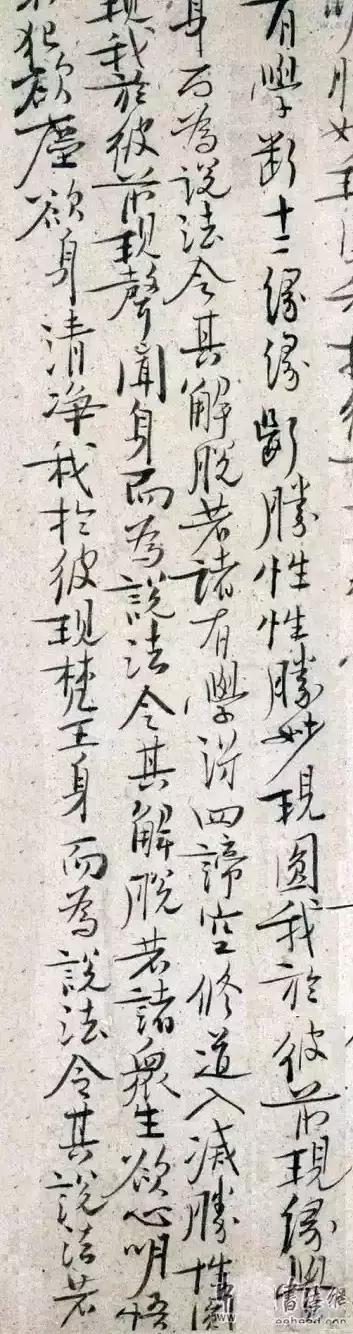 有學斷十二緣緣斷勝性性勝妙現圓我於彼前現緣
身而為說法令其解脫若諸有學得四諦空修道入滅勝性
現我於彼前現聲聞身而為說法令其解脫若諸衆生欲心明悟
犯欲塵欲身清淨我於彼現梵王身而為說法令其說法若